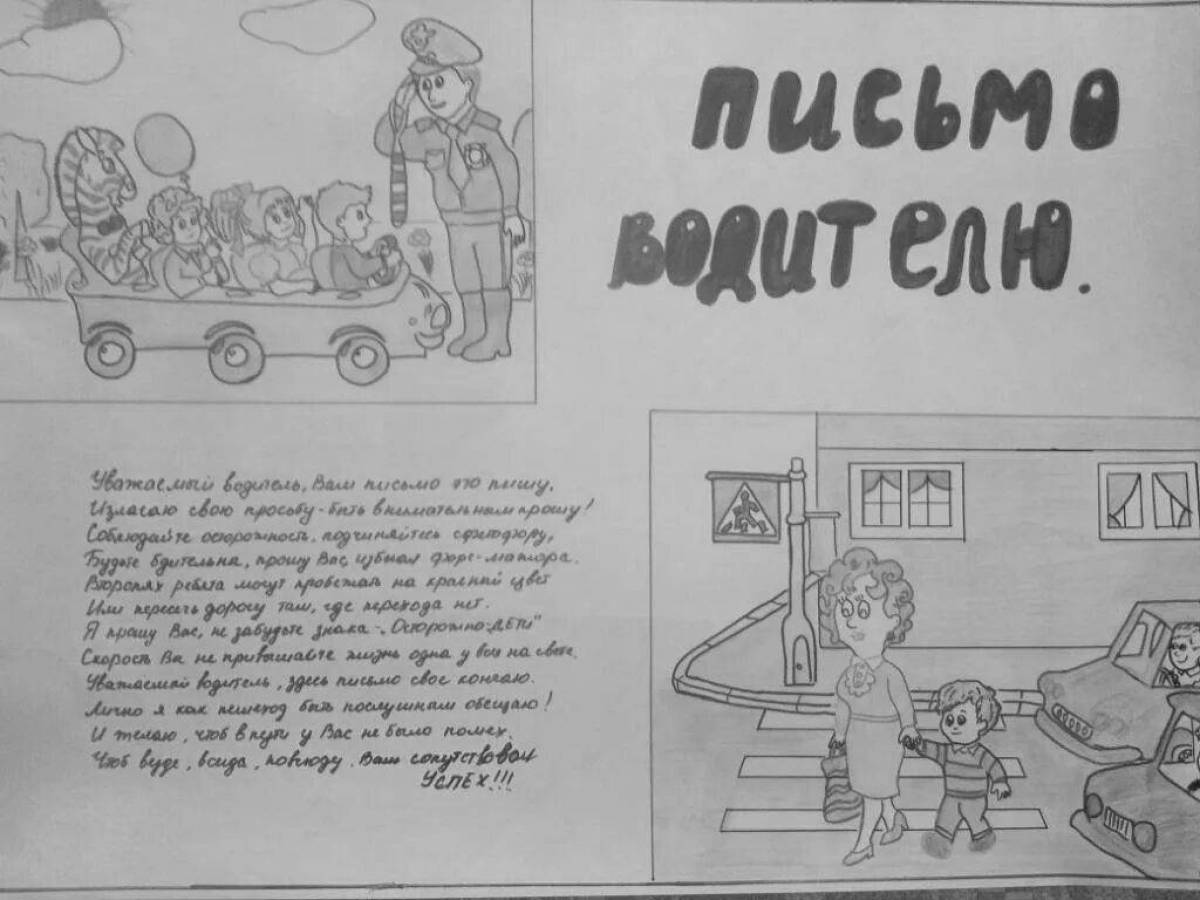 письмо
водителю.
Уважаемый водитель, Вам письмо это пишу,
Излагаю свою просьбу - быть внимательным прошу!
Соблюдайте осторожность, подчиняйтесь светофору,
Будьте бдительны, прошу Вас, избегая форс-мажора.
Второпях ребята могут пробежать на красный цвет
Или пересечь дорогу там, где перехода нет.
Я прошу Вас, не забудьте знака - „Осторожно: дети"
Скорость Вы не привышайте жизнь одна у всех на свете.
Уважаемый водитель, здесь письмо свое кончаю.
Лично я как пешеход быть послушным обещаю!
И желаю, чтоб в пути у Вас не было помех.
Чтоб везде, всегда, повсюду, Вам сопутствовал
УСПЕХ!!!